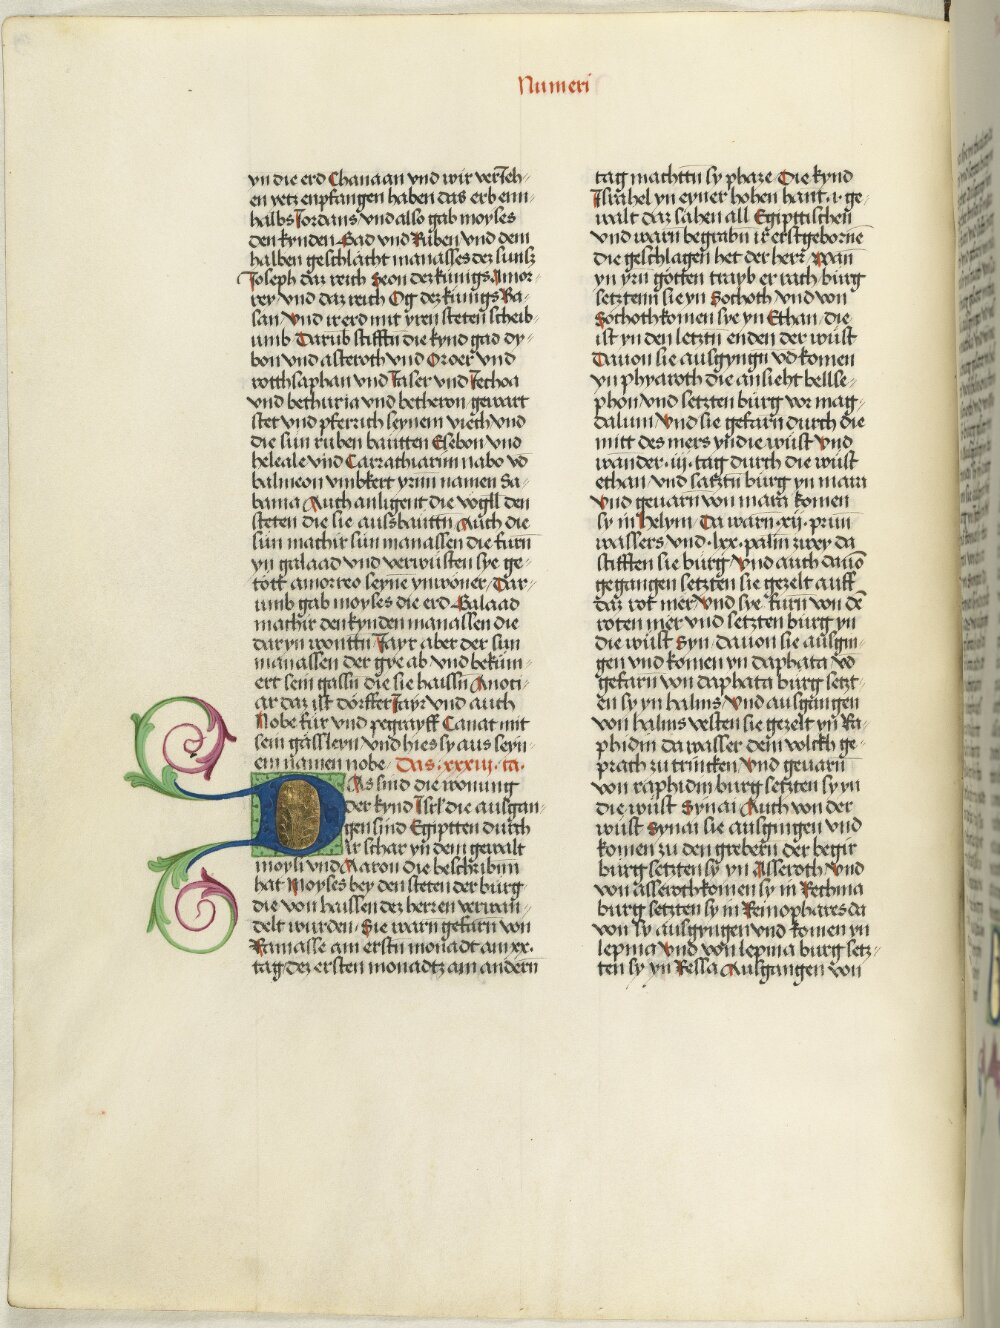 Numeri
yn die erd Chanaan vnd wir verieh-
en yetz enpfangen haben das erb enn-
halbs Jordans vnd allso gab moyses
den kynden Gad vnd Ruben vnd dem
halben geschlächt manasses des suns
Joseph daz reich Seon des künigs Amor-
rey vnd daz reich Og dez künigs Ba-
san vnd ir erd mit yren steten scheib-
umb Darub stifftn die kynd gad dy-
bon vnd asteroth vnd Oroer vnd
rotthsaphan vnd Jaser vnd Jecboa
vnd bethnria vnd betheron gewart
stet vnd pferrich seynem viech vnd
die sun ruben bautten Esebon vnd
heleale vnd Carrathiarim nabo vd
balmeon vmbkert yrnn namen Sa-
bama Auch anligent die vogll den
steten die sie auszbauttn Auch die
sun machir sun manassen die furn
yn galaad vnd verwüsten sye ge-
tött amorreo seyne ynwoner Dar-
umb gab moyses die erd Galaad
machir den kynden manassen die
dar yn wonttn Jayr aber der sun
manassen der gye ab vnd beküm-
ert sein gassn die sie haissn Anoti-
ar daz ist dörffer Jayr vnd auch
Nobe fur vnd pegrayff Canat mit
sein gassleyn vnd hies sy aus seyn-
em namen nobe Das xxxiii ca.
Das sind die wonung
der kynd Isrl die ausgan-
gen sind Egiptten durch
ir schar yn dem gewalt
moysi vnd Aaron die beschribnn
hat Moyses bey den steten der bürg
die von haissen dez herren verwan-
delt wurden Sie warn gefarn von
Ramasse am erstn monadt am xv.
tag dez ersten monadtz am andern
tag machttn sy phaze Die kynd
Israhel yn eyner hohen hant i ge-
walt daz sahen all Egipttischen
vnd warn begrabn ir erstgeborne
die geschlagen het der herr Wan
yn yrn gotten trayb er rach burg
setztenn sie yn Sochoth vnd von
Sochoth komen sye yn Ethan die
ist yn den letztn enden der wüst
Dauon sie ausgyngn vd komen
yn phyaroth die ansieht bellse-
phon vnd setzten burg vor mag-
dalum vnd sie gefarn durch die
mitt des mers yn die wüst vnd
wander iii tag durch die wüst
ethan vnd saktn burg yn mara
vnd geuarn von mara komen
sy in helym Da warn xii prun
wassers vnd lxx palm zwey da
stifften sie burg vnd auch dauo
gegangen setzten sie gezelt auff
daz rot mer vnd sye furn von de
roten mer vnd setzten burg yn
die wüst Syn dauon sie ausgin-
gen vnd komen yn daphata vd
gefarn von daphata burg setzt-
en sy yn halms vnd ausgangen
von halms velsten sie gezelt yn Ra-
phidin da wasser dem volckh ge-
prach zu trincken vnd geuarn
von raphidin burg setzten sy yn
die wüst Synai Auch von der
wüst Synai sie ausgingen vnd
komen zu den grebern der begir
burg setzten sy yn Asseroth vnd
von asseroth komen sy in Rethma
burg setzten sy in Remophares da
von sy ausgyngen vnd komen yn
lepma vnd von lepma burg setz-
ten sy yn Ressa Ausgangen von